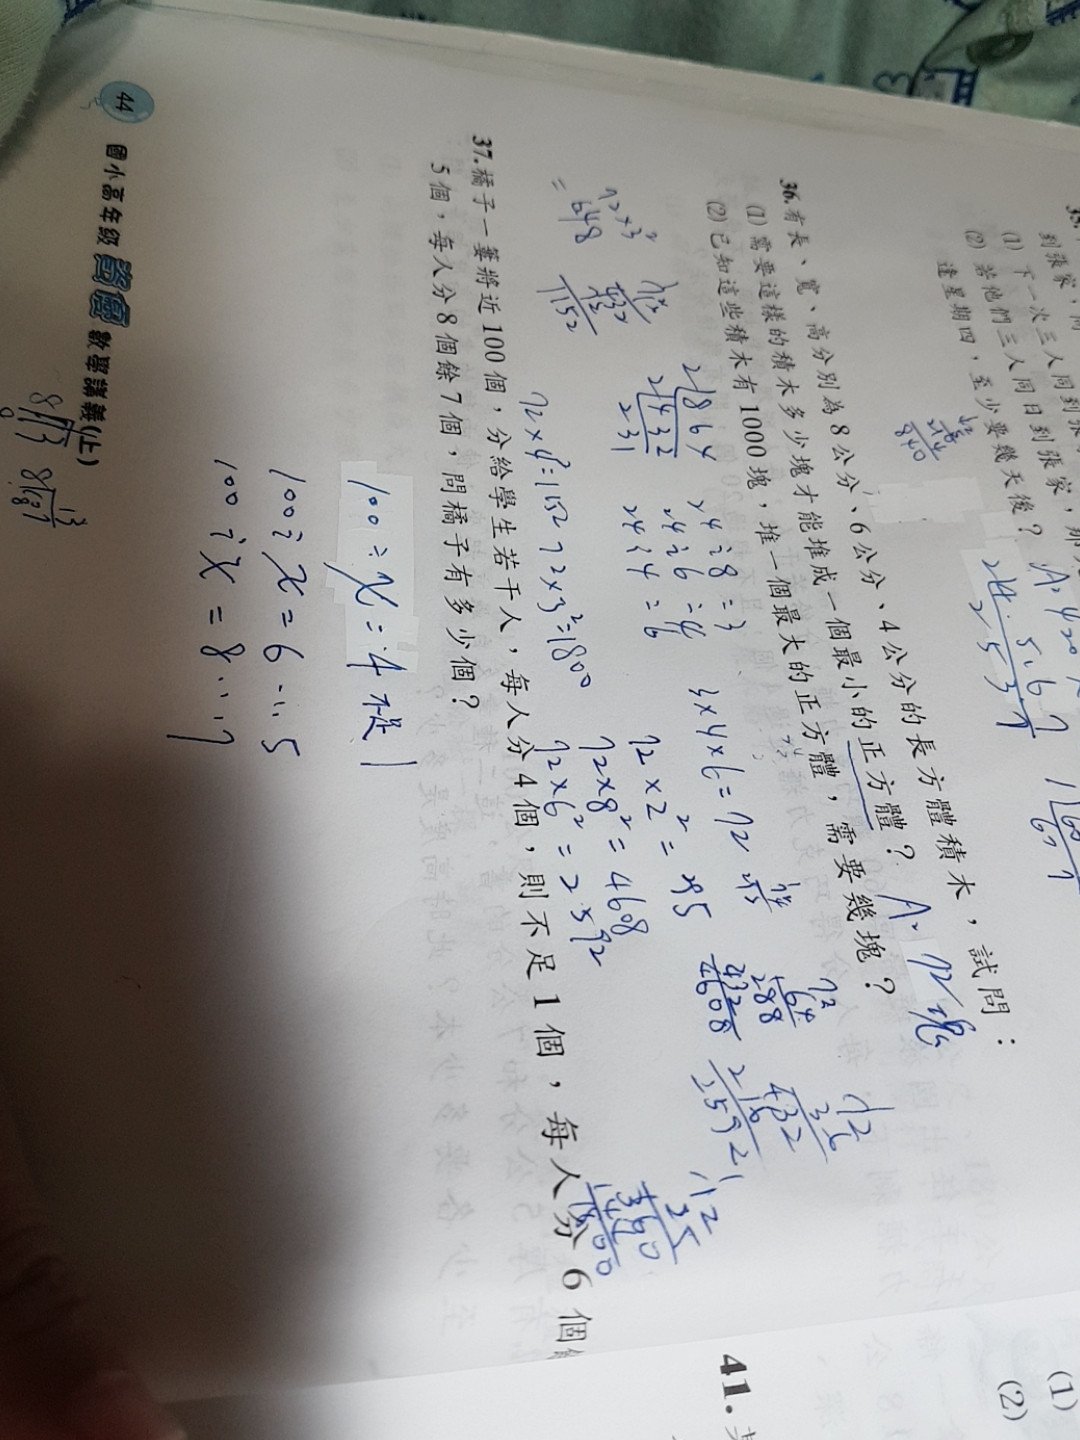 到張家，
(1) 下一次三人同到張
(2) 若他們三人同日到張家，那
逢星期四，至少要幾天後？
36.有長、寬、高分別為8公分、6公分、4公分的長方體積木，試問：
(1) 需要這樣的積木多少塊才能堆成一個最小的正方體？
A. 72塊
(2) 已知這些積木有1000塊，堆一個最大的正方體，需要幾塊？
2|864
2|432
231
24÷8=3
24÷6=4
24÷4=6
3×4×6=72
72×3²
=648
72×2²=295
72×8²=4608
72×6²=2592
72×4²=1152
72×5²=1800
72
64
288
432
4608
72
36
432
216
2592
72
25
360
144
1800
37.橘子一簍將近100個，分給學生若干人，每人分4個，則不足1個，每人分6個
5個，每人分8個餘7個，問橘子有多少個？
100÷x=4不足1
100÷x=6…5
100÷x=8…7
44
國小高年級 資優 數學講義(上)
41.
(1)
(2)